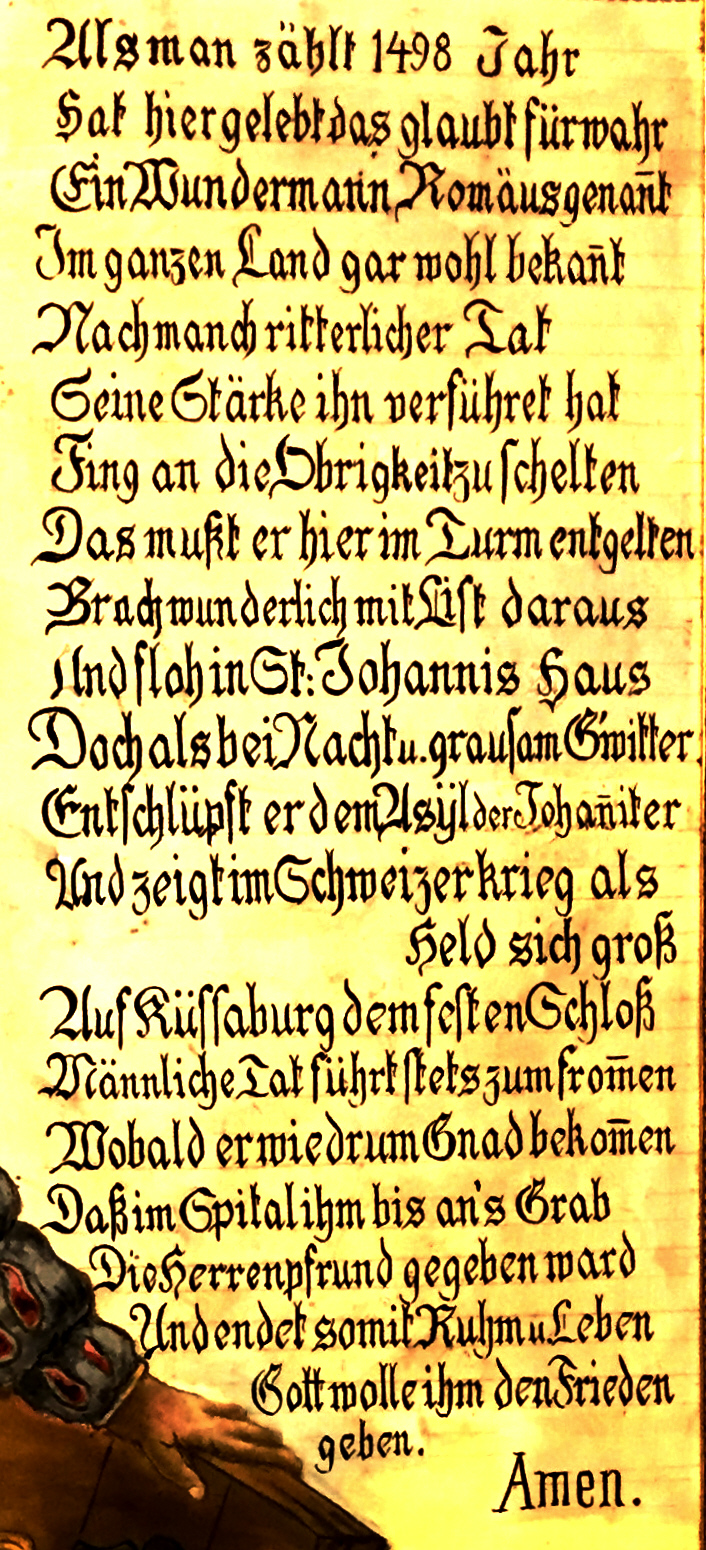 Als man zählt 1498 Jahr
Hat hier gelebt das glaubt fürwahr
Ein Wundermann Romäus genan̄t
Im ganzen Land gar wohl bekan̄t
Nach manch ritterlicher Tat
Seine Stärke ihn verführet hat
Fing an die Obrigkeit zu schelten
Das mußt er hier im Turm entgelten
Brach wunderlich mit List daraus
Und floh in St: Johannis Haus
Doch als bei Nacht u. grausam G'witter
Entschlüpft er dem Asÿl der Johan̄iter
Und zeigt im Schweizerkrieg als
Held sich groß
Auf Küssaburg dem festen Schloß
Männliche Tat führt stets zum from̄en
Wobald er wiedrum Gnad bekom̄en
Daß im Spital ihm bis an's Grab
Die Herrenpfrund gegeben ward
Und endet somit Ruhm u Leben
Gott wolle ihm den Frieden
geben.
Amen.